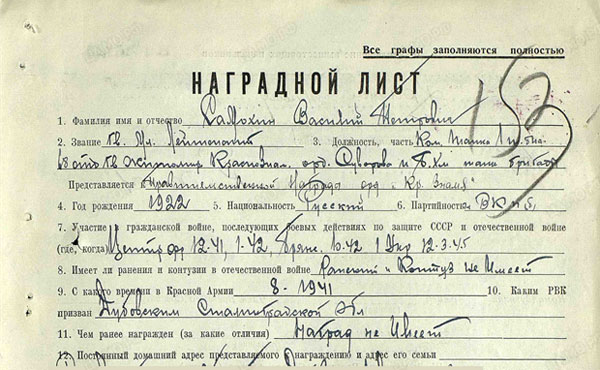 Все графы заполняются полностью
153
НАГРАДНОЙ ЛИСТ
1. Фамилия имя и отчество Самохин Василий Петрович
2. Звание Гв. Мл. Лейтенант 3. Должность, часть Ком. Танка
Гв. Житомирск. Краснозн. орд. Суворова и Б. Хм. танк. бригады
Представляется к Правительственной Награде орд. „Кр. Знамя"
4. Год рождения 1922 5. Национальность Русский 6. Партийность ВКПб.
7. Участие в гражданской войне, последующих боевых действиях по защите СССР и отечественной войне
(где, когда) Центр. фр 12-41, 1-42, Брянс. 1 Укр 12-3.45
8. Имеет ли ранения и контузии в отечественной войне Ранений и Контуз не Имеет
9. С какого времени в Красной Армии 8-1941 10. Каким РВК
призван Дубовским Сталинградской обл
11. Чем ранее награжден (за какие отличия) Наград не Имеет
12. Постоянный домашний адрес представляемого к награждению и адрес его семьи